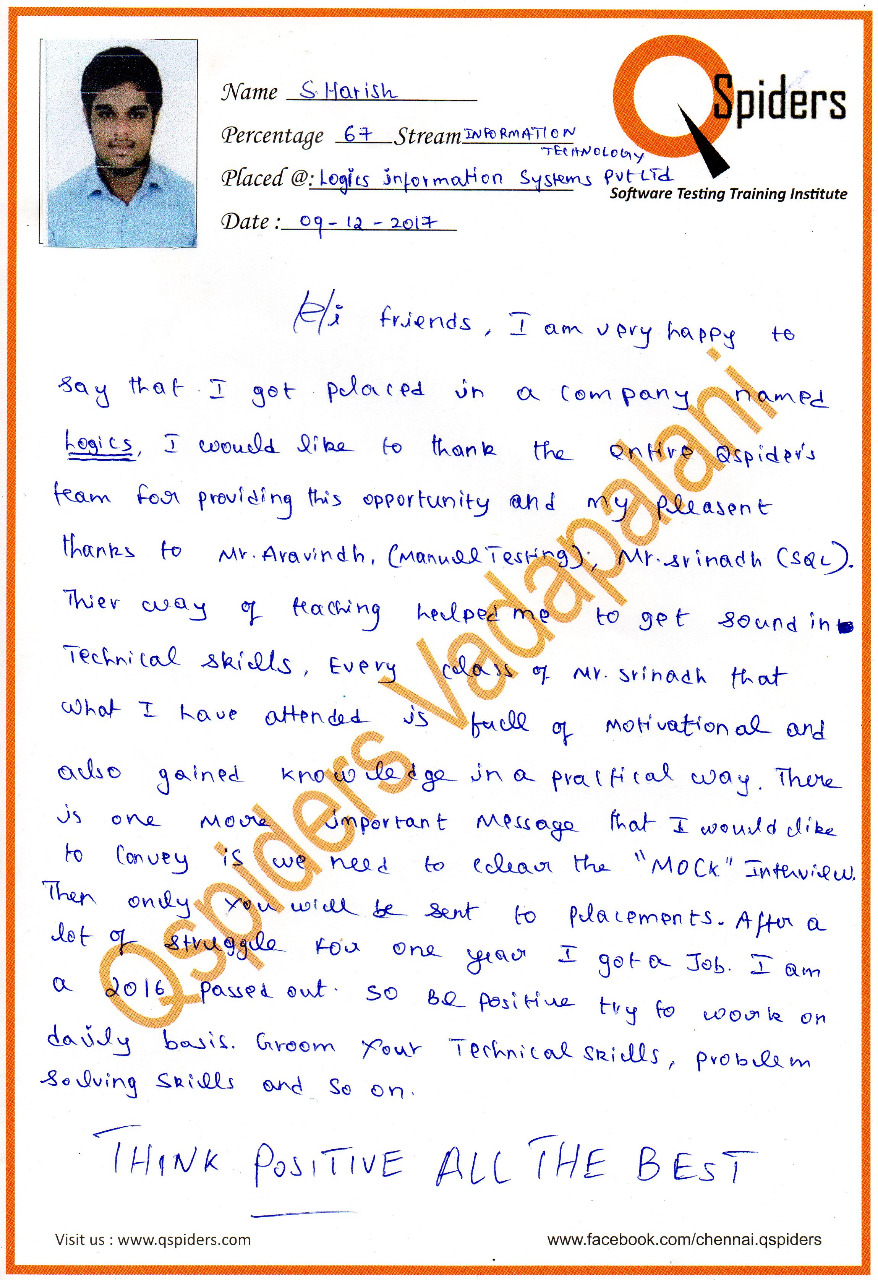 Name S Harish
Percentage 67 Stream INFORMATION TECHNOLOGY
Placed @: Logics information Systems Pvt Ltd
Date : 09-12-2017
QSpiders
Software Testing Training Institute
Hi friends, I am very happy to
say that I got placed in a company named
Logics, I would like to thank the entire Qspider's
team for providing this opportunity and my pleasent
thanks to Mr. Aravindh, (Manuell Testing), Mr. Srinadh (SQL).
Thier way of teaching helped me to get sound in
Technical skills, Every class of Mr. Srinadh that
what I have attended is full of motivational and
also gained knowledge in a practical way. There
is one more important message that I would like
to Convey is we need to clear the "MOCK" Interview.
Then only you will be sent to placements. After a
lot of struggle for one year I got a Job. I am
a 2016 passed out. So Be positive try to work on
daily basis. Groom Your Technical skills, problem
solving skills and so on.
THINK POSITIVE ALL THE BEST
Qspiders Vadapalani
Visit us : www.qspiders.com
www.facebook.com/chennai.qspiders